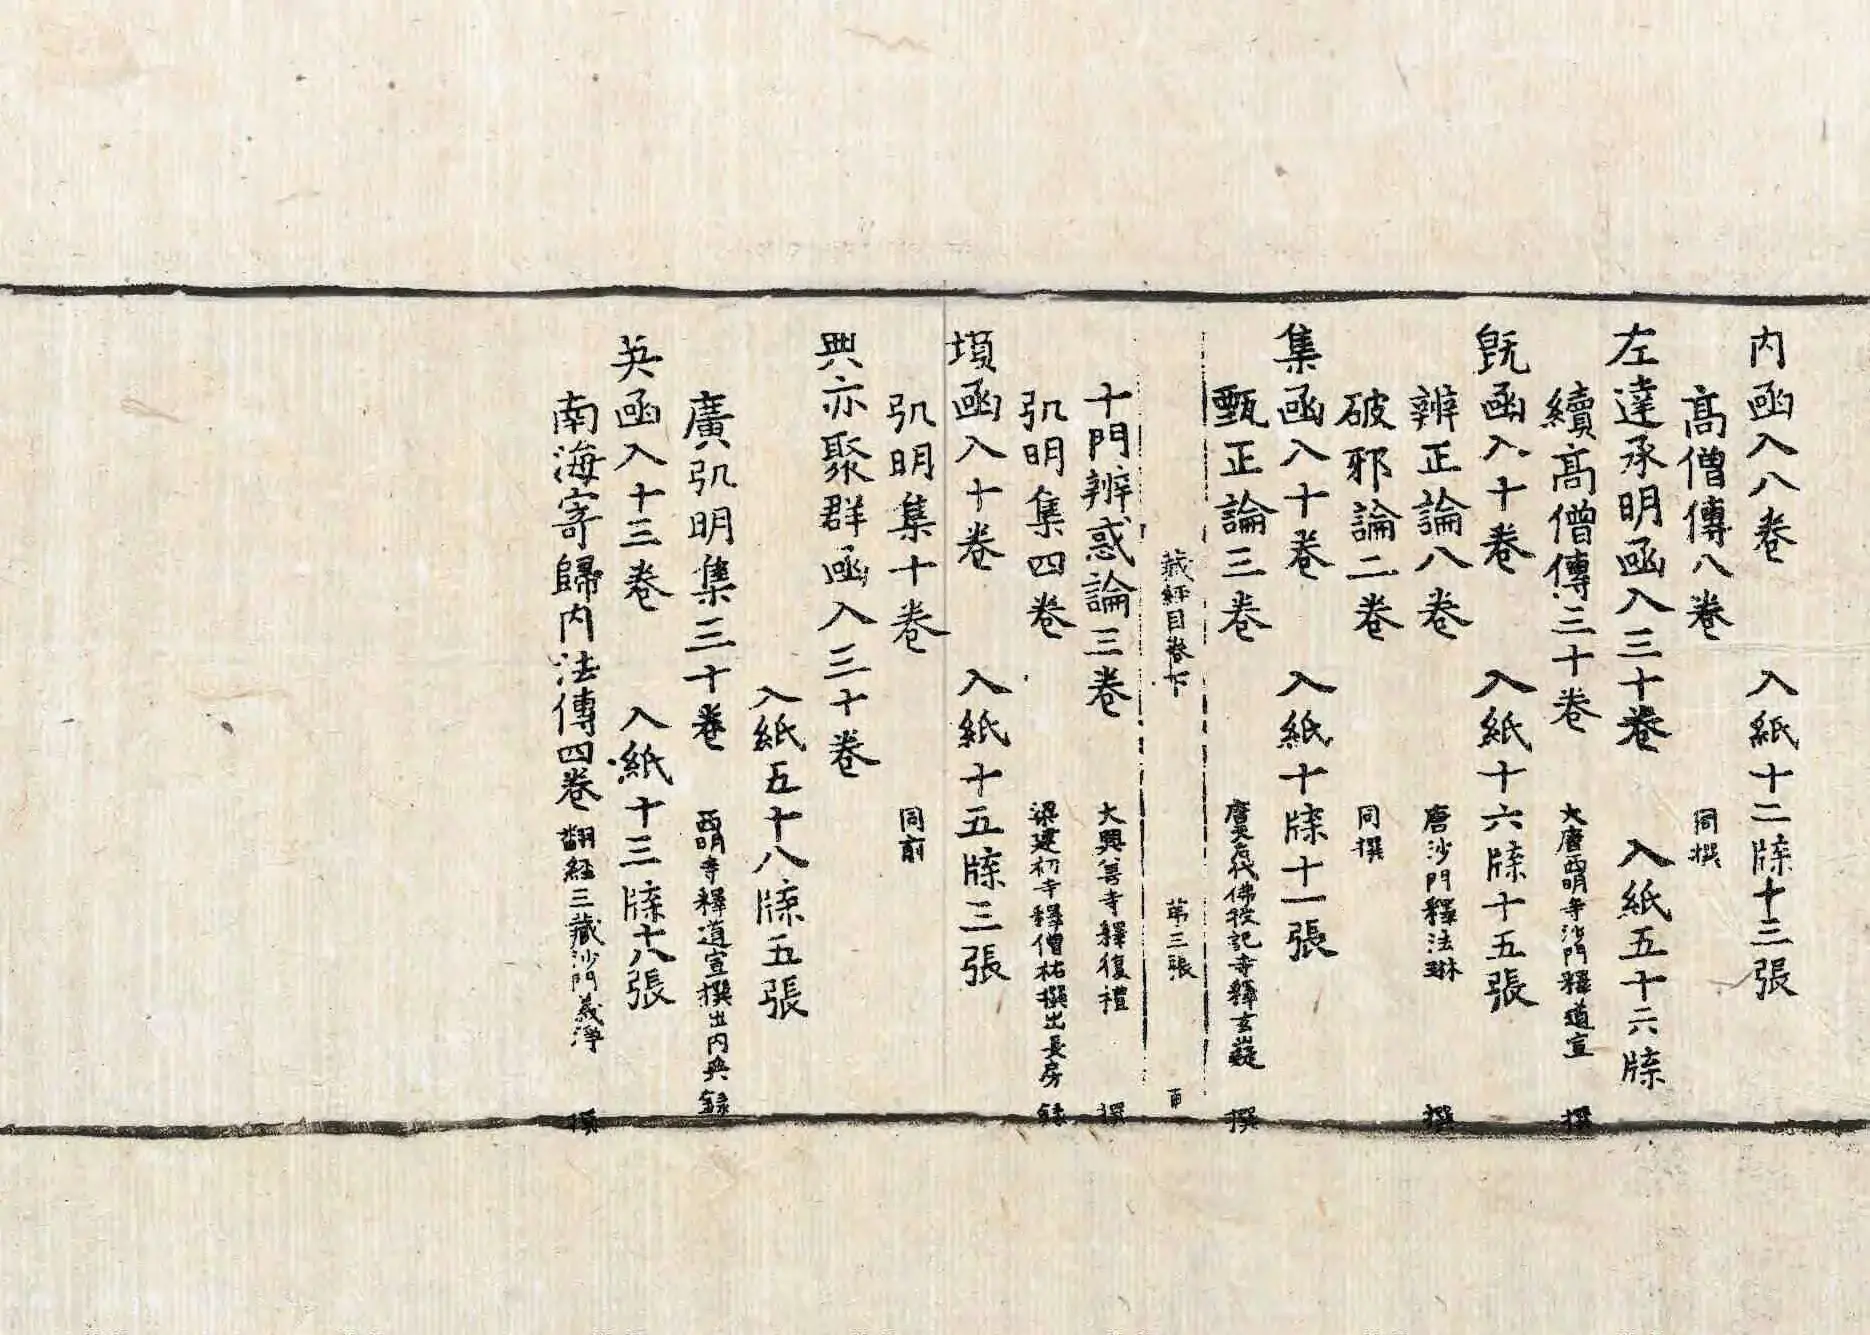 内函入八卷 入紙十二牒十三張
高僧傳八卷 同撰
左達承明函入三十卷 入紙五十六牒
續高僧傳三十卷 大唐西明寺沙門釋道宣 撰
旣函入十卷 入紙十六牒十五張
辨正論八卷 唐沙門釋法琳 撰
破邪論二卷 同撰
集函入十卷 入紙十牒十一張
甄正論三卷 唐天后代佛授記寺釋玄嶷 撰
藏經目卷下 第三張
十門辨惑論三卷 大興善寺釋復禮 撰
弘明集四卷 梁建初寺釋僧祐撰出長房 錄
墳函入十卷 入紙十五牒三張
弘明集十卷 同前
典亦聚群函入三十卷
入紙五十八牒五張
廣弘明集三十卷 西明寺釋道宣撰出内典錄
英函入十三卷 入紙十三牒十八張
南海寄歸内法傳四卷 翻經三藏沙門義淨 撰